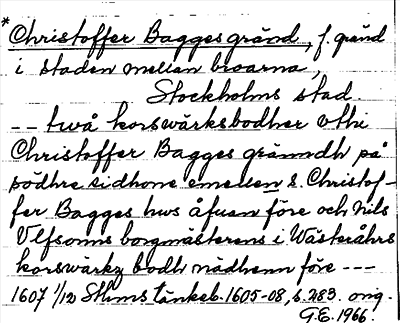 *Christoffer Bagges gränd, f. gränd
i staden mellan broarna,
Stockholms stad
-- twå korswärksbodher vthi
Christoffer Bagges gränndh på
södhre sidhone emellen S. Christof-
fer Bagges hws åfuan före och Nils
Vlfsonns borgmästerens i Wästeråhrs
korswärkz bodh nädhenn före ---
1607 1/12 Sthms tänkeb. 1605-08, s. 283. orig.
G.E. 1966.